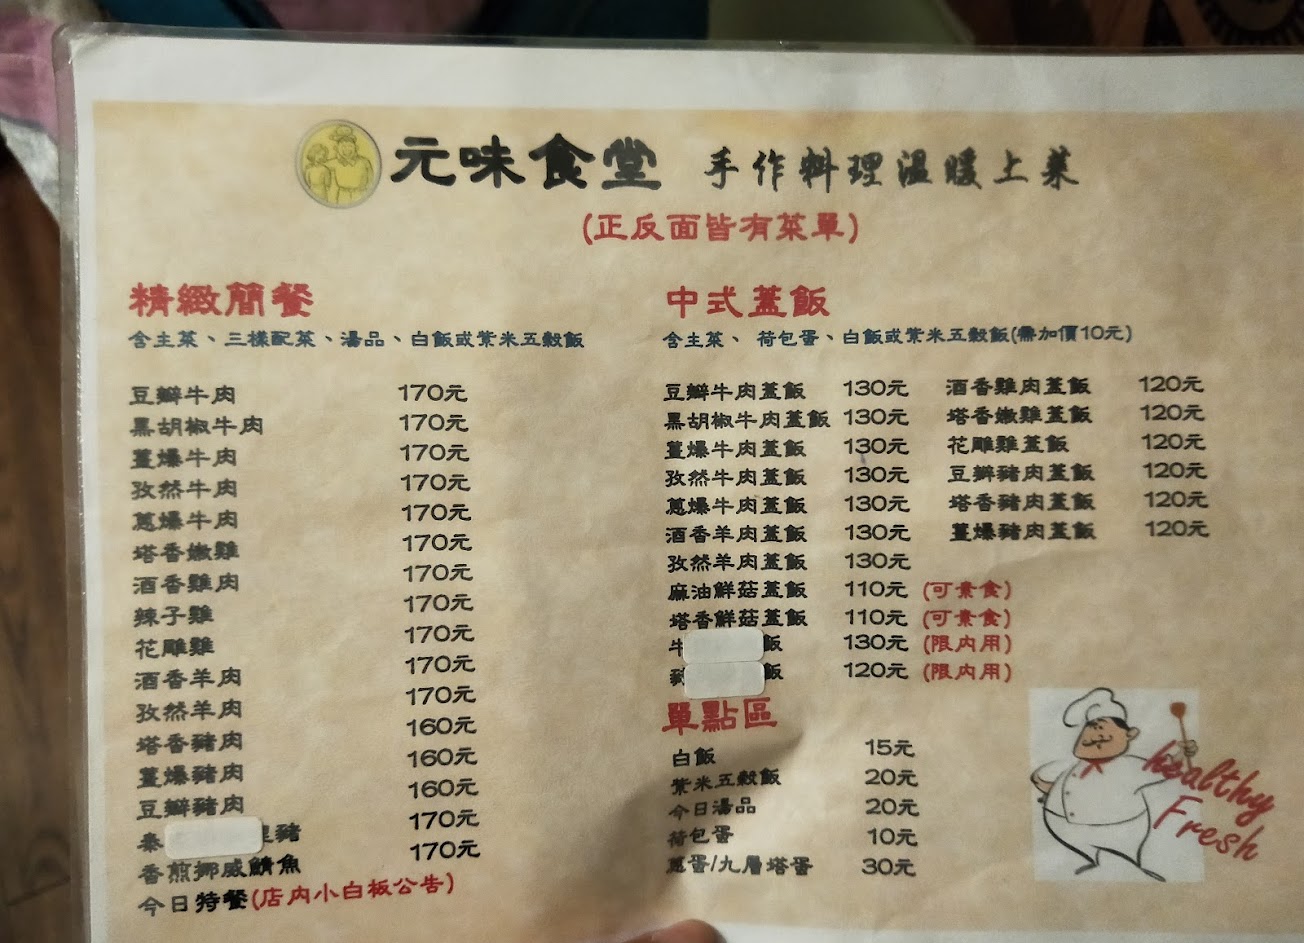 元味食堂 手作料理溫暖上菜
(正反面皆有菜單)
精緻簡餐
含主菜、三樣配菜、湯品、白飯或紫米五穀飯
豆瓣牛肉 170元
黑胡椒牛肉 170元
薑爆牛肉 170元
孜然牛肉 170元
蔥爆牛肉 170元
塔香嫩雞 170元
酒香雞肉 170元
辣子雞 170元
花雕雞 170元
酒香羊肉 170元
孜然羊肉 170元
塔香豬肉 160元
薑爆豬肉 160元
豆瓣豬肉 160元
秦 豬 170元
香煎挪威鯖魚 170元
今日特餐(店內小白板公告)
中式蓋飯
含主菜、荷包蛋、白飯或紫米五穀飯(需加價10元)
豆瓣牛肉蓋飯 130元
黑胡椒牛肉蓋飯 130元
薑爆牛肉蓋飯 130元
孜然牛肉蓋飯 130元
蔥爆牛肉蓋飯 130元
酒香羊肉蓋飯 130元
孜然羊肉蓋飯 130元
麻油鮮菇蓋飯 110元 (可素食)
塔香鮮菇蓋飯 110元 (可素食)
牛 飯 130元 (限內用)
飯 120元 (限內用)
酒香雞肉蓋飯 120元
塔香嫩雞蓋飯 120元
花雕雞蓋飯 120元
豆瓣豬肉蓋飯 120元
塔香豬肉蓋飯 120元
薑爆豬肉蓋飯 120元
單點區
白飯 15元
紫米五穀飯 20元
今日湯品 20元
荷包蛋 10元
蔥蛋/九層塔蛋 30元
healthy
Fresh